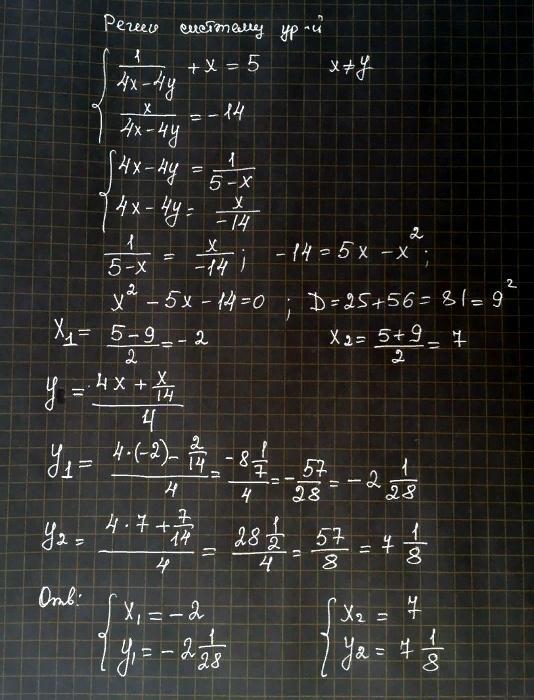 Реши систему ур-й
{ 1/(4x-4y) + x = 5    x≠y
x/(4x-4y) = -14
{ 4x-4y = 1/(5-x)
4x-4y = x/-14
1/(5-x) = x/-14 ; -14 = 5x - x² ;
x² - 5x - 14 = 0 ; D = 25 + 56 = 81 = 9²
x₁ = (5-9)/2 = -2    x₂ = (5+9)/2 = 7
y = (4x + x/14)/4
y₁ = (4·(-2) - 2/14)/4 = (-8 1/7)/4 = -57/28 = -2 1/28
y₂ = (4·7 + 7/14)/4 = (28 1/2)/4 = 57/8 = 7 1/8
Отв: { x₁ = -2    { x₂ = 7
y₁ = -2 1/28    y₂ = 7 1/8